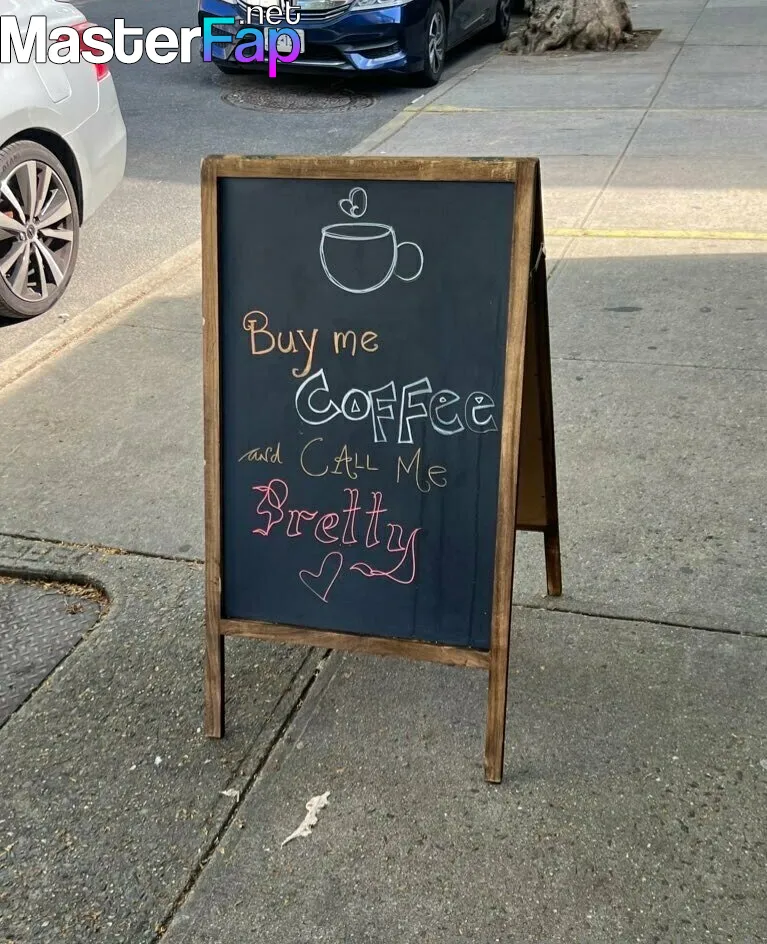 .net
MasterFap
Buy me
COFFee
and CALL Me
Pretty